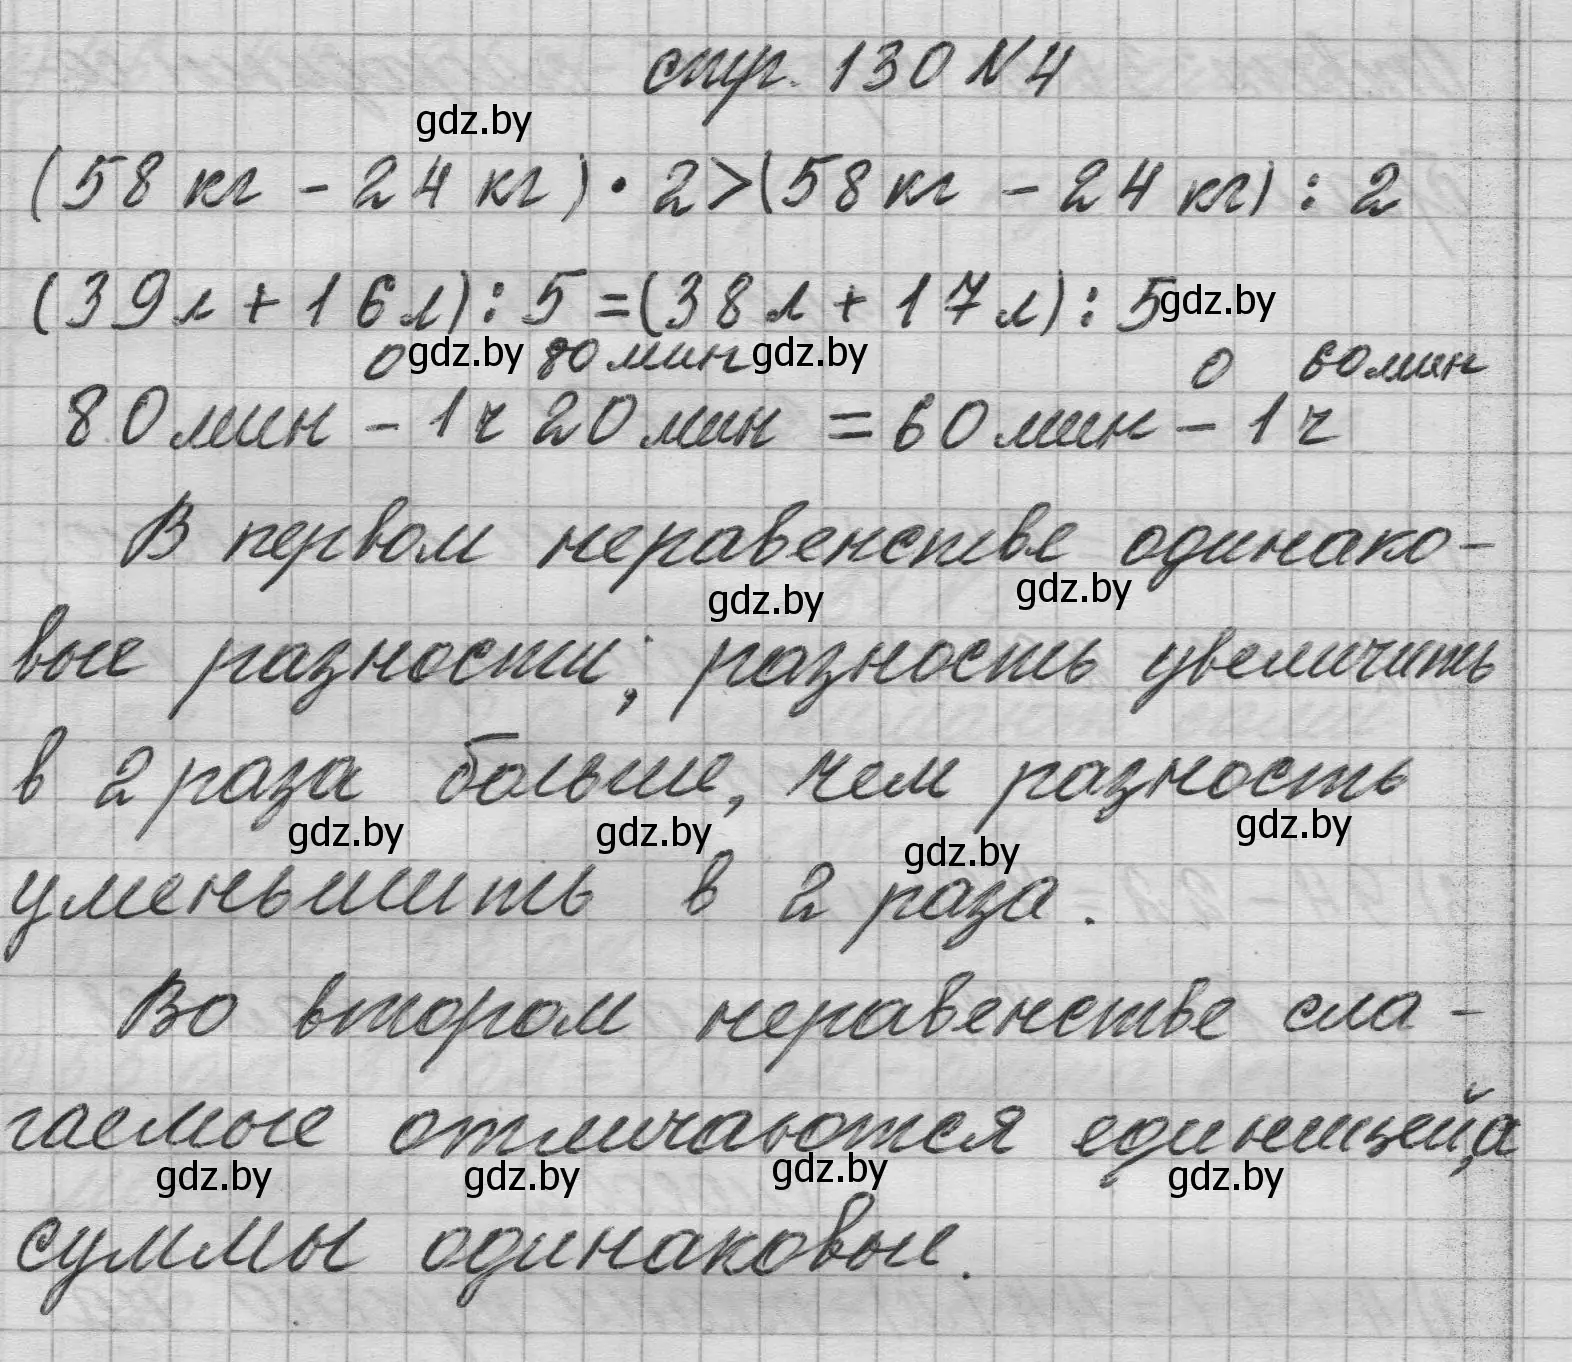 стр. 130 N 4
gdz.by
(58 кг - 24 кг) · 2 > (58 кг - 24 кг) : 2
(39 л + 16 л) : 5 = (38 л + 17 л) : 5 gdz.by
0 gdz.by 80 мин gdz.by 0 60 мин
80 мин - 1 ч 20 мин = 60 мин - 1 ч
В первом неравенстве одинако-
gdz.by gdz.by
вые разности; разность увеличить
в 2 раза больше, чем разность
gdz.by gdz.by gdz.by gdz.by
уменьшить в 2 раза.
Во втором неравенстве сла-
гаемые отличаются единицей, а
gdz.by gdz.by gdz.by gdz.by
суммы одинаковые.